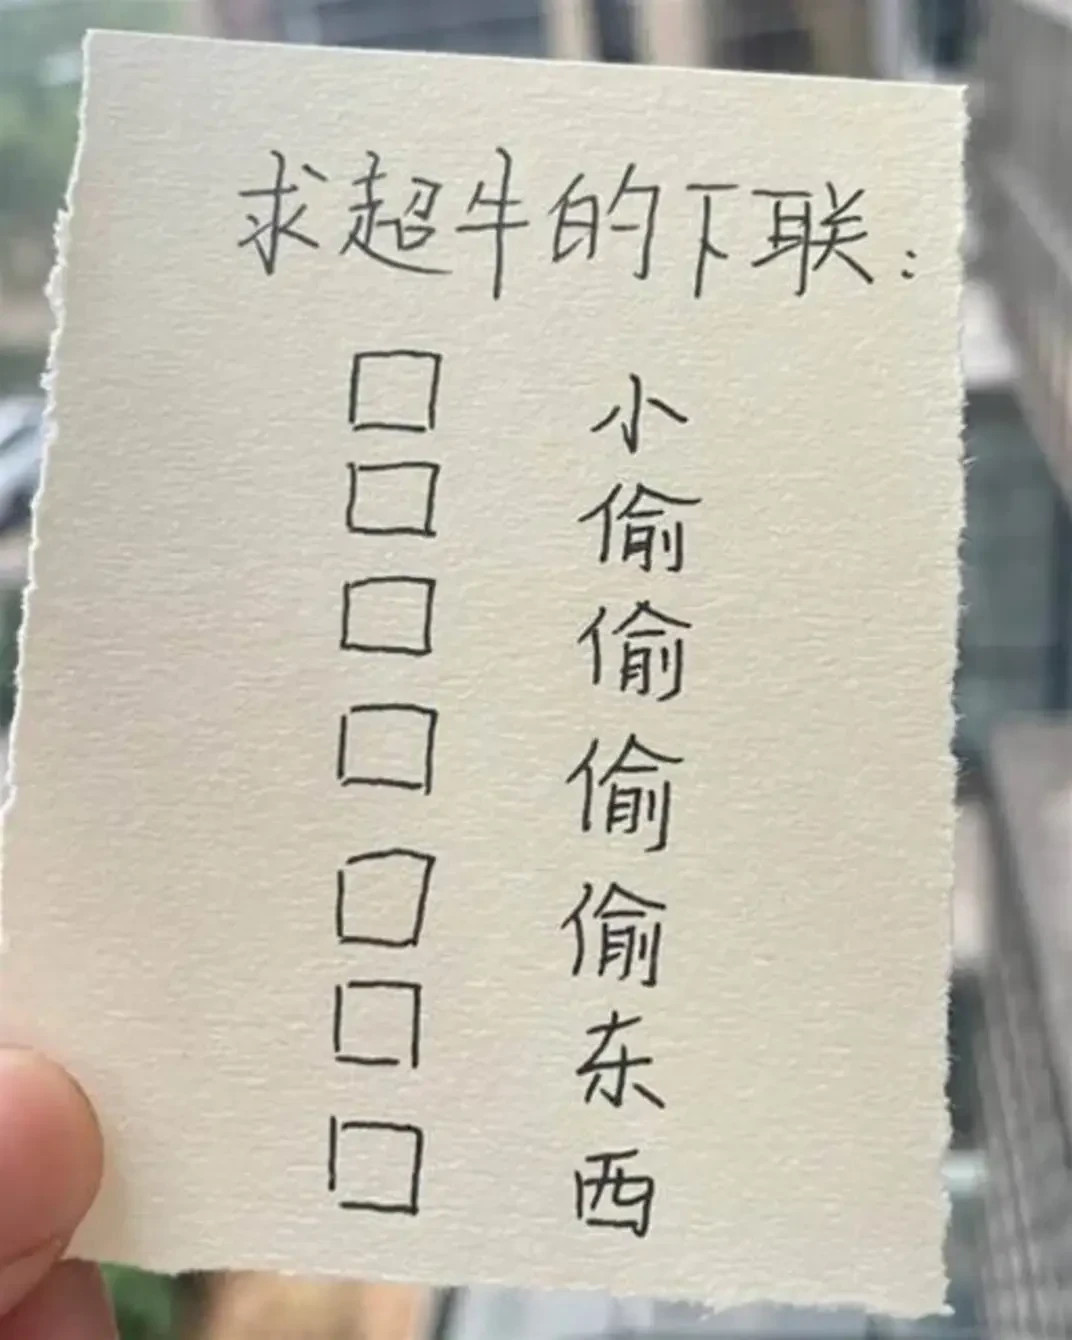 求超牛的下联：
小偷偷偷偷东西
□□□□□□□